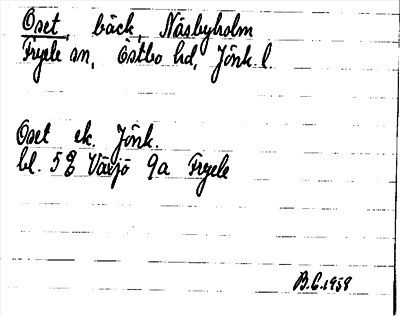 Oset, bäck, Näsbyholm
Fryele sn, Östbo hd, Jönk. l.
Oset ek. Jönk.
bl. 5E Växjö 9a Fryele
B.C. 1958